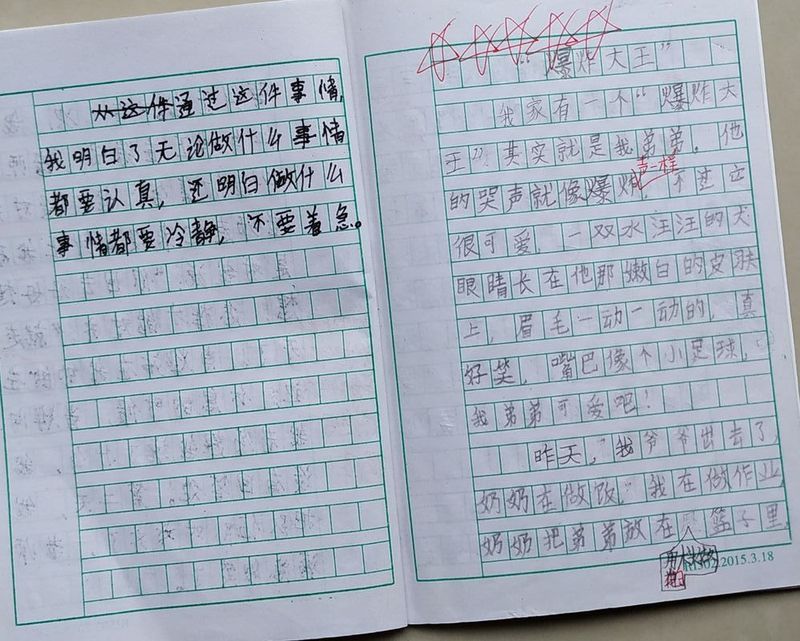 从这件通过这件事情，
我明白了无论做什么事情
都要认真，还明白做什么
事情都要冷静，不要着急。
“爆炸大王”
我家有一个“爆炸大
王”其实就是我弟弟。他
声一样
的哭声就像爆炸，不过
很可爱 一双水汪汪的大
眼睛长在他那嫩白的皮肤
上，眉毛一动一动的，真
好笑，嘴巴像个小足球，
我弟弟可爱吧！
昨天，我爷爷出去了，
奶奶在做饭，我在做作业，
奶奶把弟弟放在 篮子里，
2015.3.18